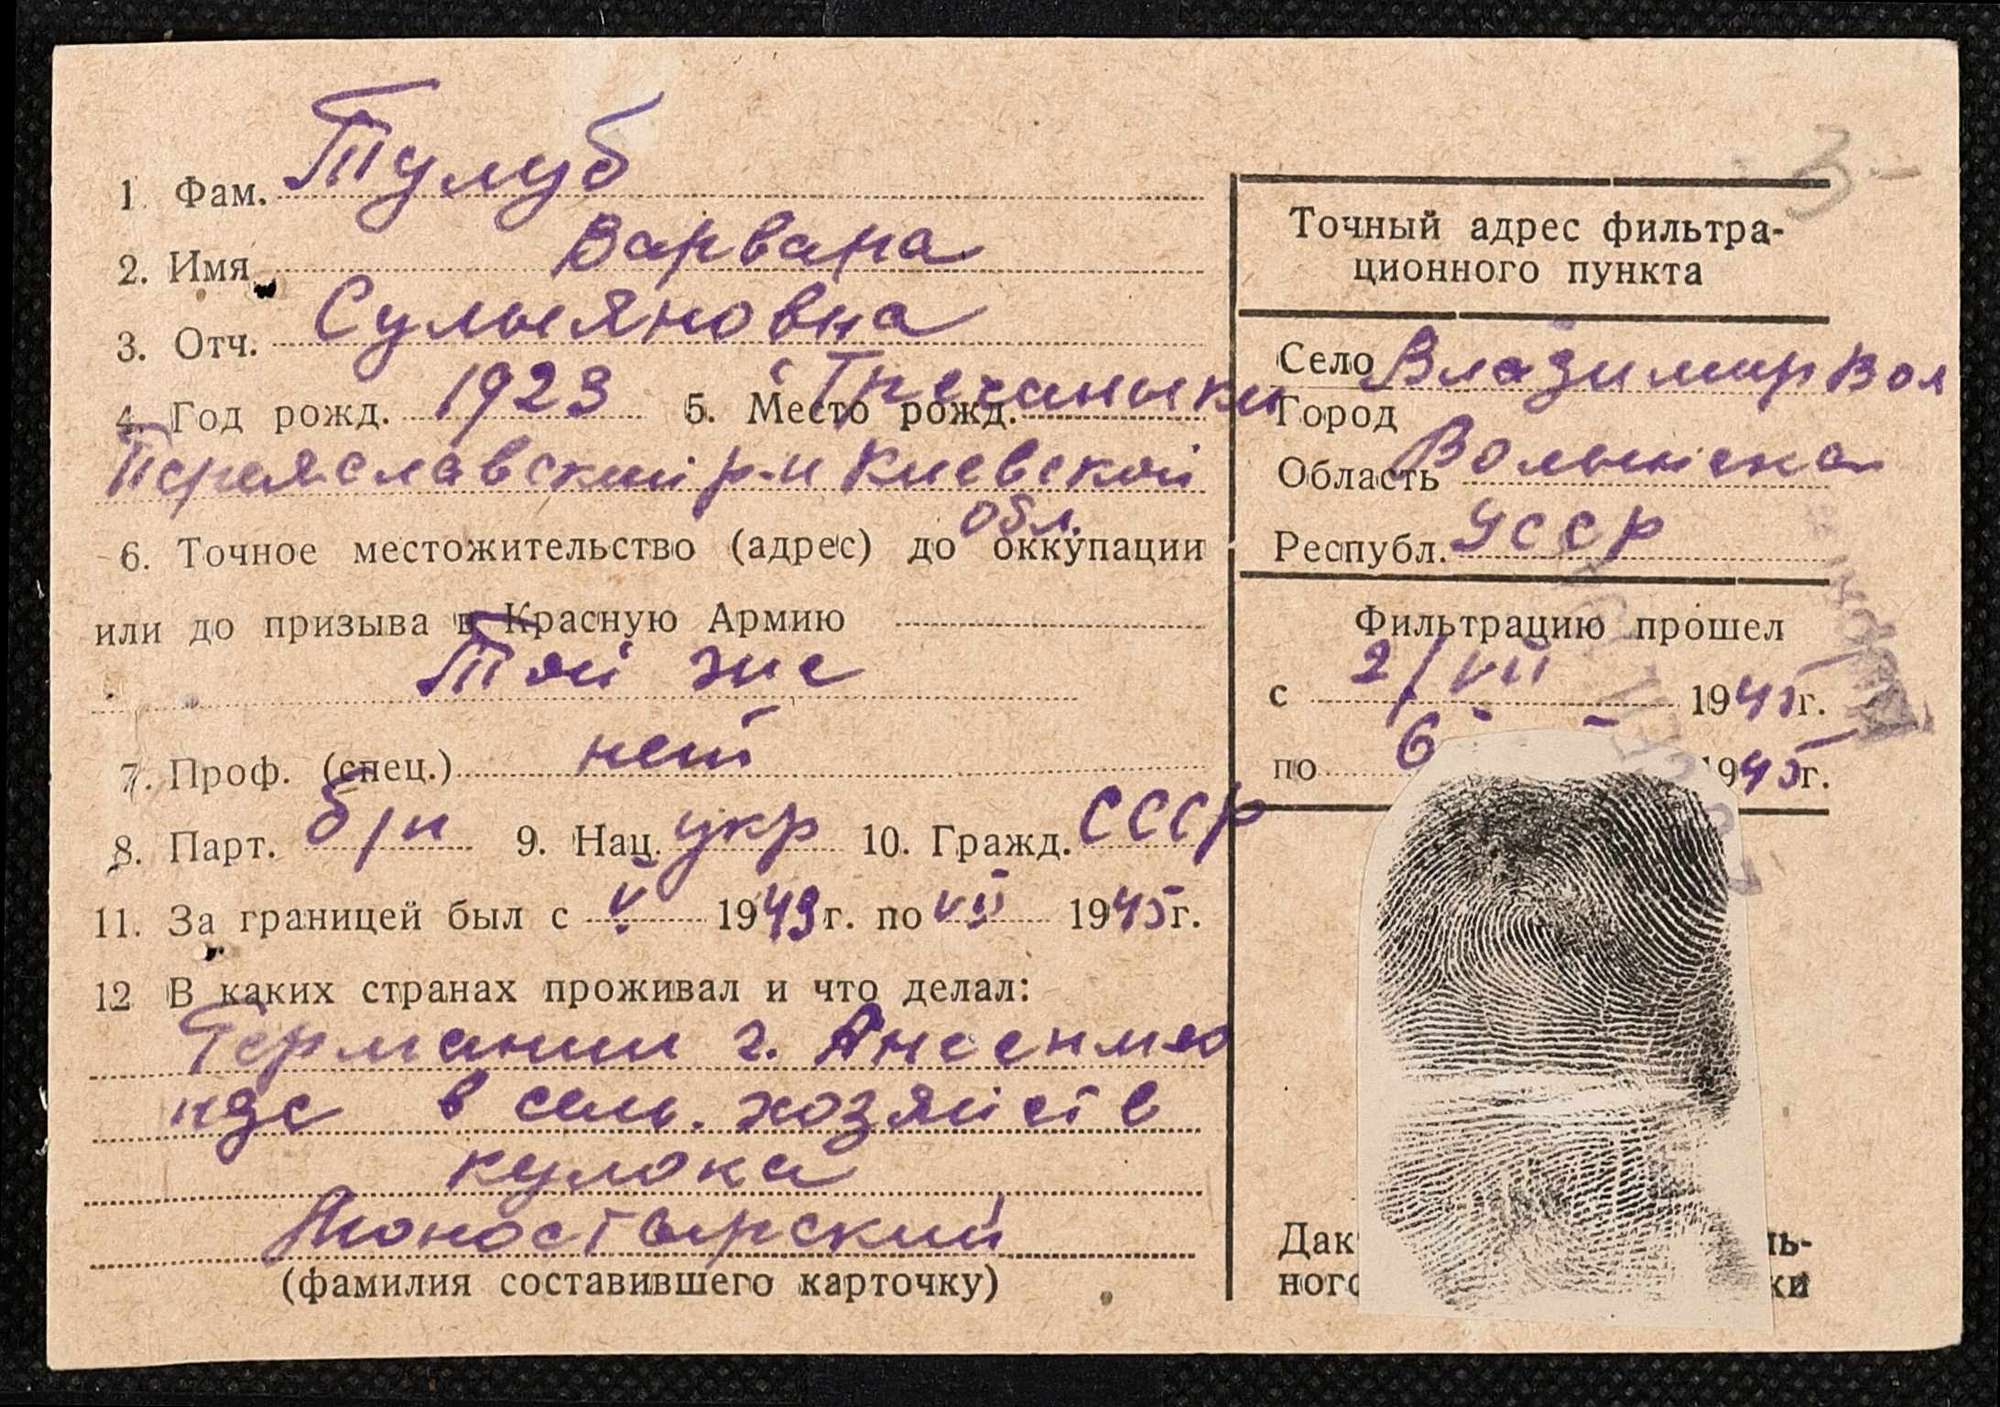 1. Фам. Тулуб
2. Имя Варвара
3. Отч. Сульяновна
4. Год рожд. 1923 5. Место рожд.
Переяславский р-н Киевской
обл.
6. Точное местожительство (адрес) до оккупации
или до призыва в Красную Армию
Той же
7. Проф. (спец.) нет
8. Парт. б/п 9. Нац. укр 10. Гражд. СССР
11. За границей был с V 1943 г. по VII 1945 г.
12 В каких странах проживал и что делал:
Германии г.
в сель. хозяйств
кулока
(фамилия составившего карточку)
3-
Точный адрес фильтра-
ционного пункта
Село Владимир Вол
Город
Область Волынска
Республ. УССР
Фильтрацию прошел
с 2/VII 1945 г.
по 6 - - 1945 г.